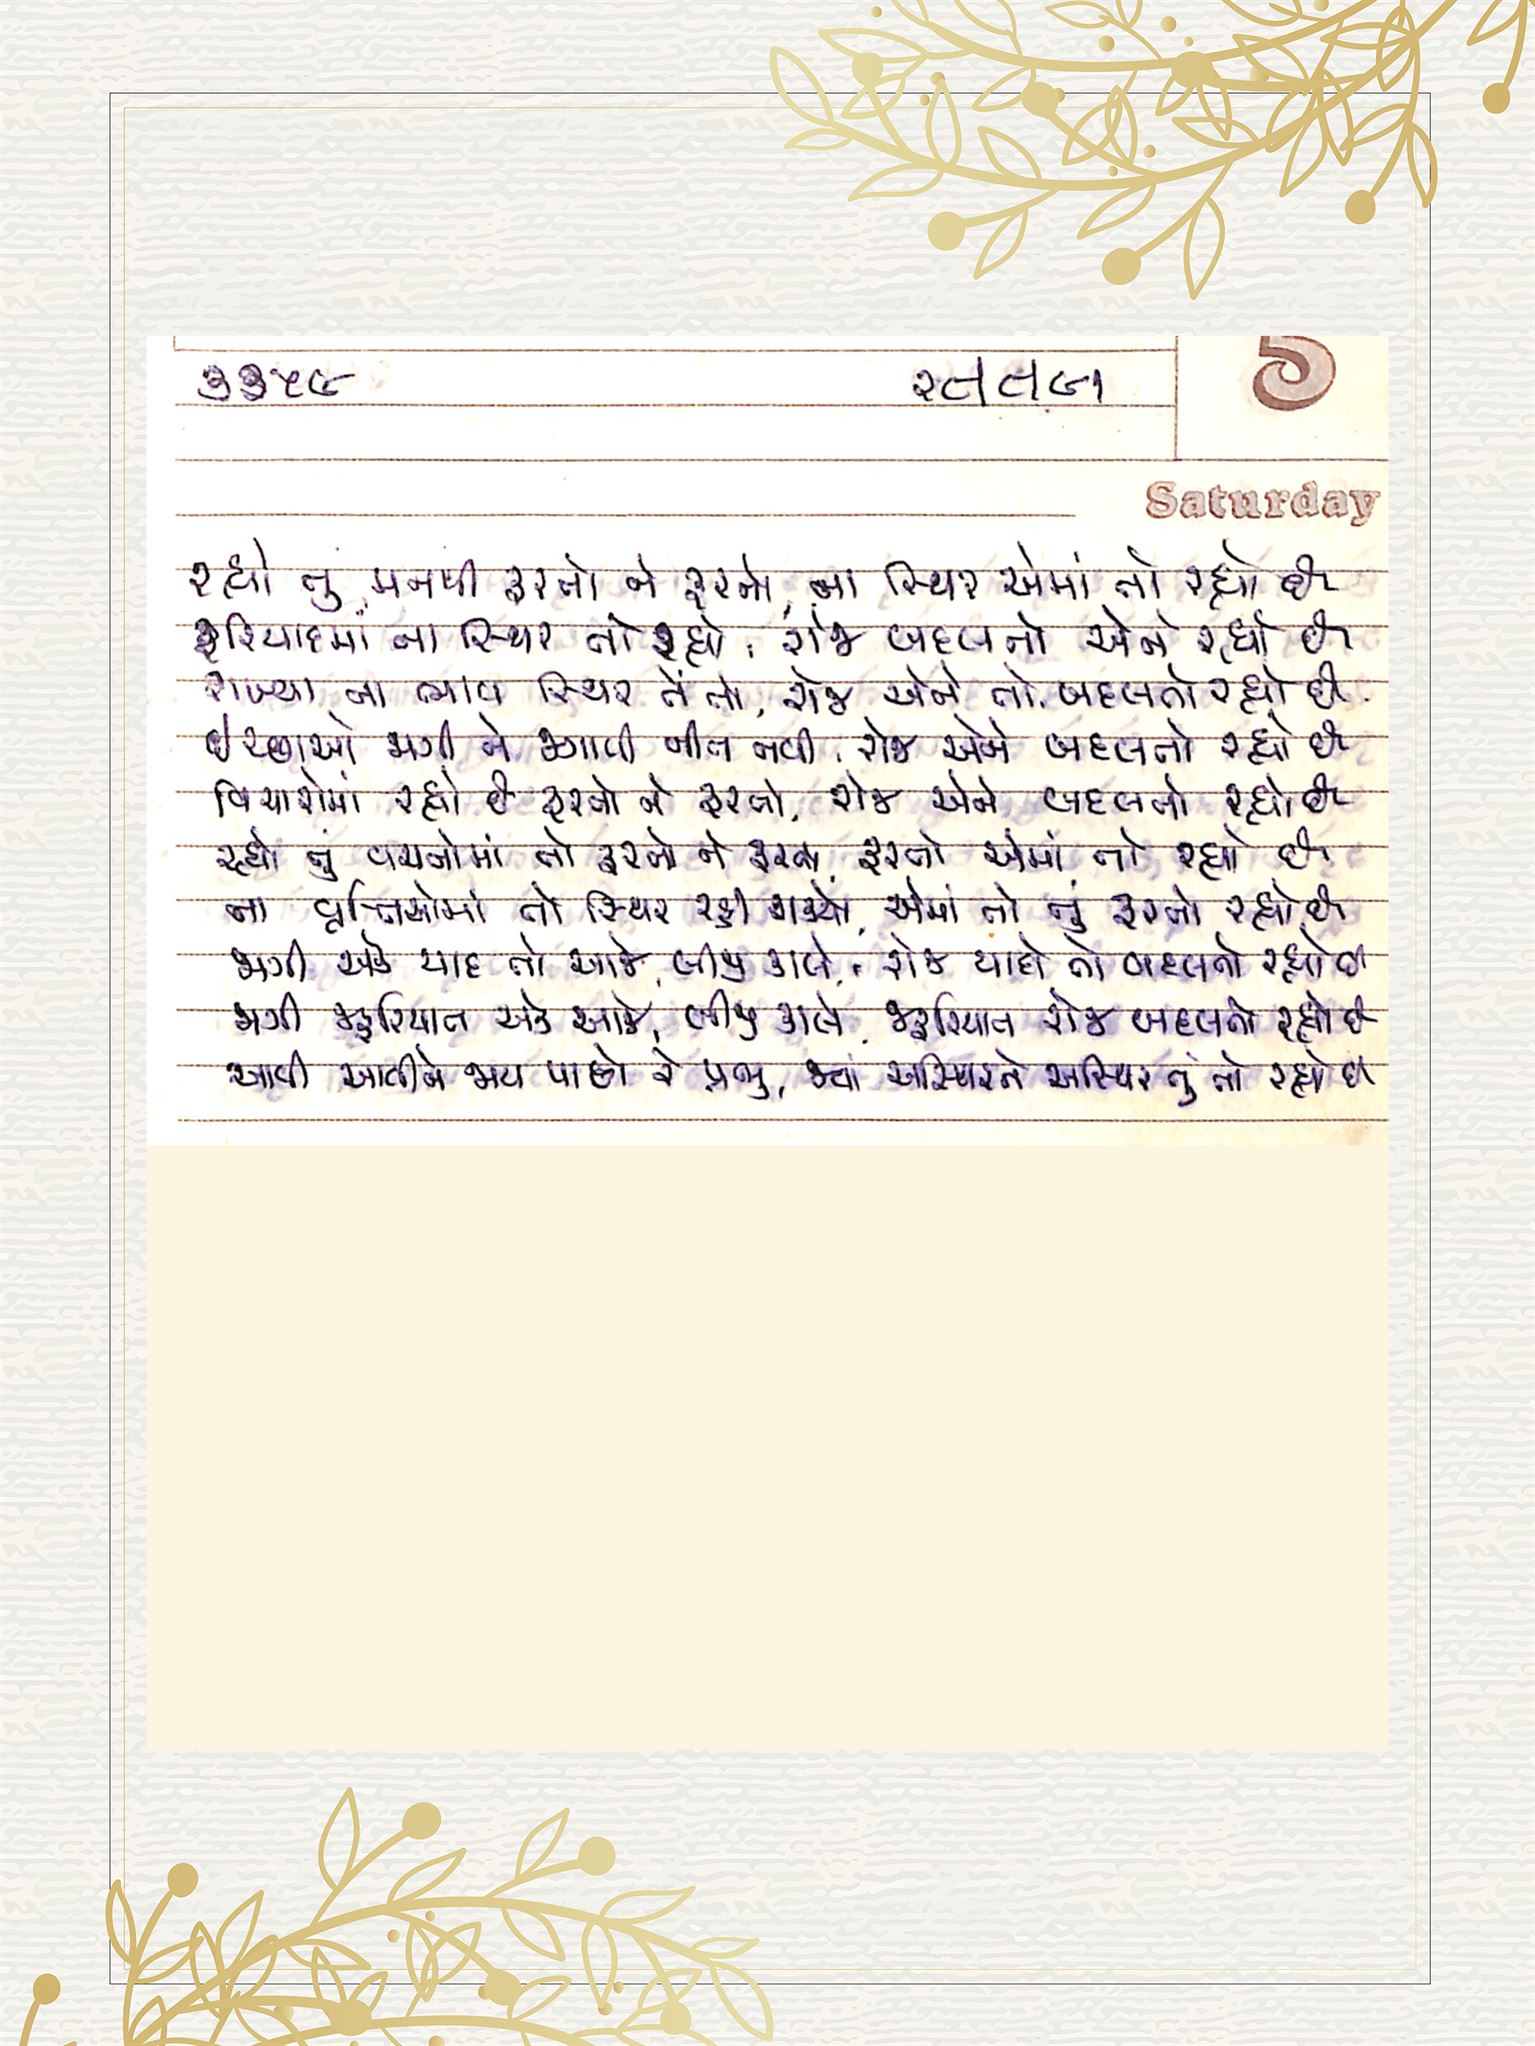 ૩૩૫૯ ૨૮ ૮ ૯૧
૭
Saturday
રહ્યો તું મનથી ફરતો ને ફરતો, ના સ્થિર એમાં તો રહ્યો છે
ફરિયાદમાં ના સ્થિર તો રહ્યો, રોજ બદલતો એને રહ્યો છે
રાખ્યા ના ભાવ સ્થિર તેં તો, રોજ એને તો બદલતો રહ્યો છે
ઈચ્છાઓ જાગી ને જગાવી નીત નવી, રોજ એને બદલતો રહ્યો છે
વિચારોમાં રહ્યો છે ફરતો ને ફરતો, રોજ એને બદલતો રહ્યો છે
રહ્યો તું વચનોમાં તો ફરતો ને ફરતો, ફરતો એમાં તો રહ્યો છે
ના વૃત્તિઓમાં તો સ્થિર રહી શક્યો, એમાં તો તું ફરતો રહ્યો છે
જાગી એક યાદ તો આજે, બીજી કાલે, રોજ યાદો તો બદલતો રહ્યો છે
જાગી જરૂરિયાત એક આજે, બીજી કાલે, જરૂરિયાત રોજ બદલતો રહ્યો છે
આવી આવીને જાય પાછો રે પ્રભુ, જ્યાં અસ્થિરને અસ્થિર તું તો રહ્યો છે